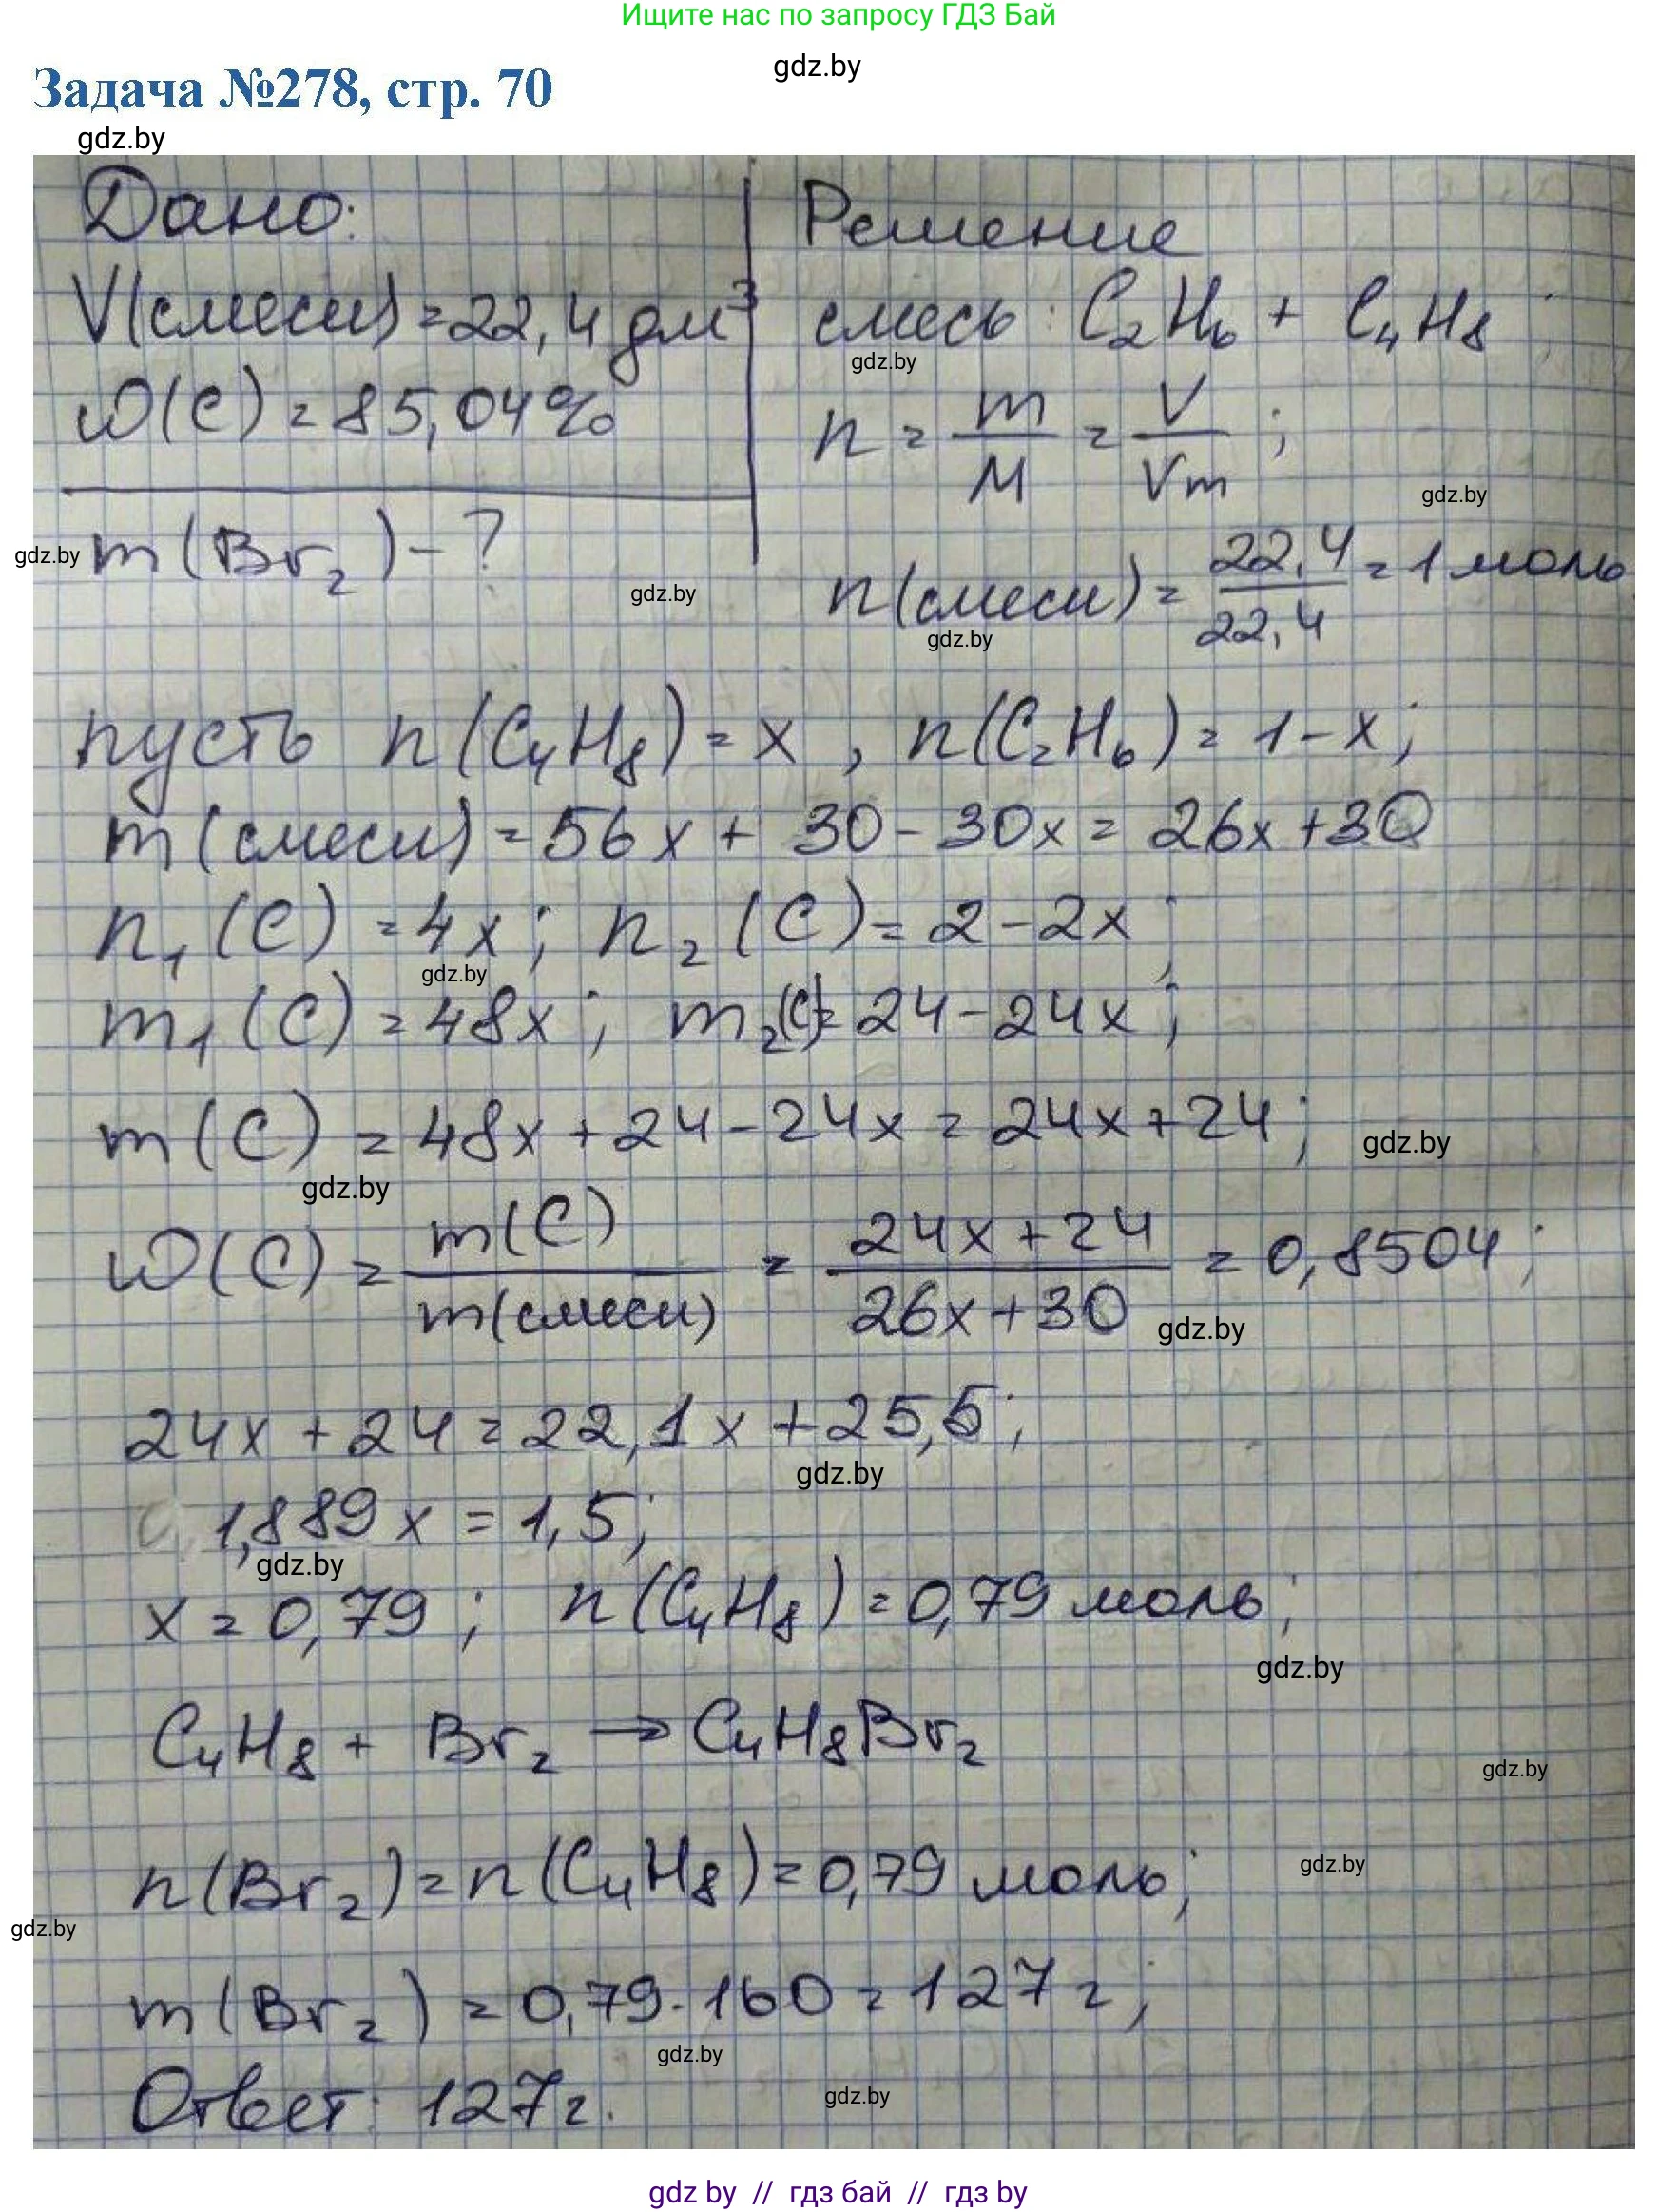 Ищите нас по запросу ГДЗ Бай
gdz.by
Задача №278, стр. 70
gdz.by
Дано:
V(смеси) = 22,4 дм³
ω(C) = 85,04%
m(Br₂) - ?
gdz.by
gdz.by
Решение
смесь: C₂H₆ + C₄H₈;
gdz.by
n = m/M = V/Vm;
gdz.by
n(смеси) = 22,4/22,4 = 1 моль
gdz.by
пусть n(C₄H₈) = x, n(C₂H₆) = 1-x;
m(смеси) = 56x + 30 - 30x = 26x + 30
n₁(C) = 4x; n₂(C) = 2 - 2x;
gdz.by
m₁(C) = 48x; m₂(C) = 24 - 24x;
m(C) = 48x + 24 - 24x = 24x + 24;
gdz.by
gdz.by
ω(C) = m(C)/m(смеси) = 24x + 24/26x + 30 = 0,8504;
gdz.by
24x + 24 = 22,1x + 25,5;
gdz.by
1,889x = 1,5;
gdz.by
x = 0,79; n(C₄H₈) = 0,79 моль;
gdz.by
C₄H₈ + Br₂ → C₄H₈Br₂
gdz.by
n(Br₂) = n(C₄H₈) = 0,79 моль;
gdz.by
gdz.by
m(Br₂) = 0,79 · 160 = 127 г;
gdz.by
Ответ: 127 г.
gdz.by
gdz by // гдз бай // гдз by